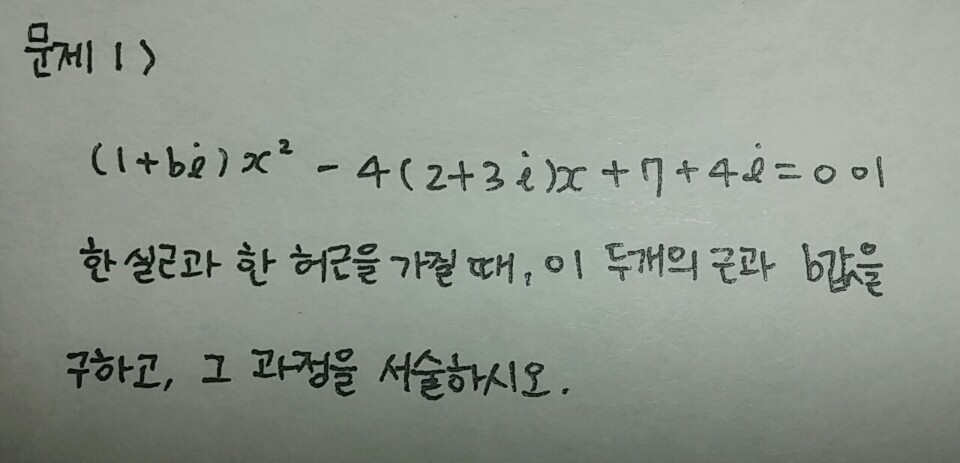 문제 1>
(1+bi)x² - 4(2+3i)x + 7 + 4i = 0 이
한 실근과 한 허근을 가질 때, 이 두개의 근과 b값을
구하고, 그 과정을 서술하시오.